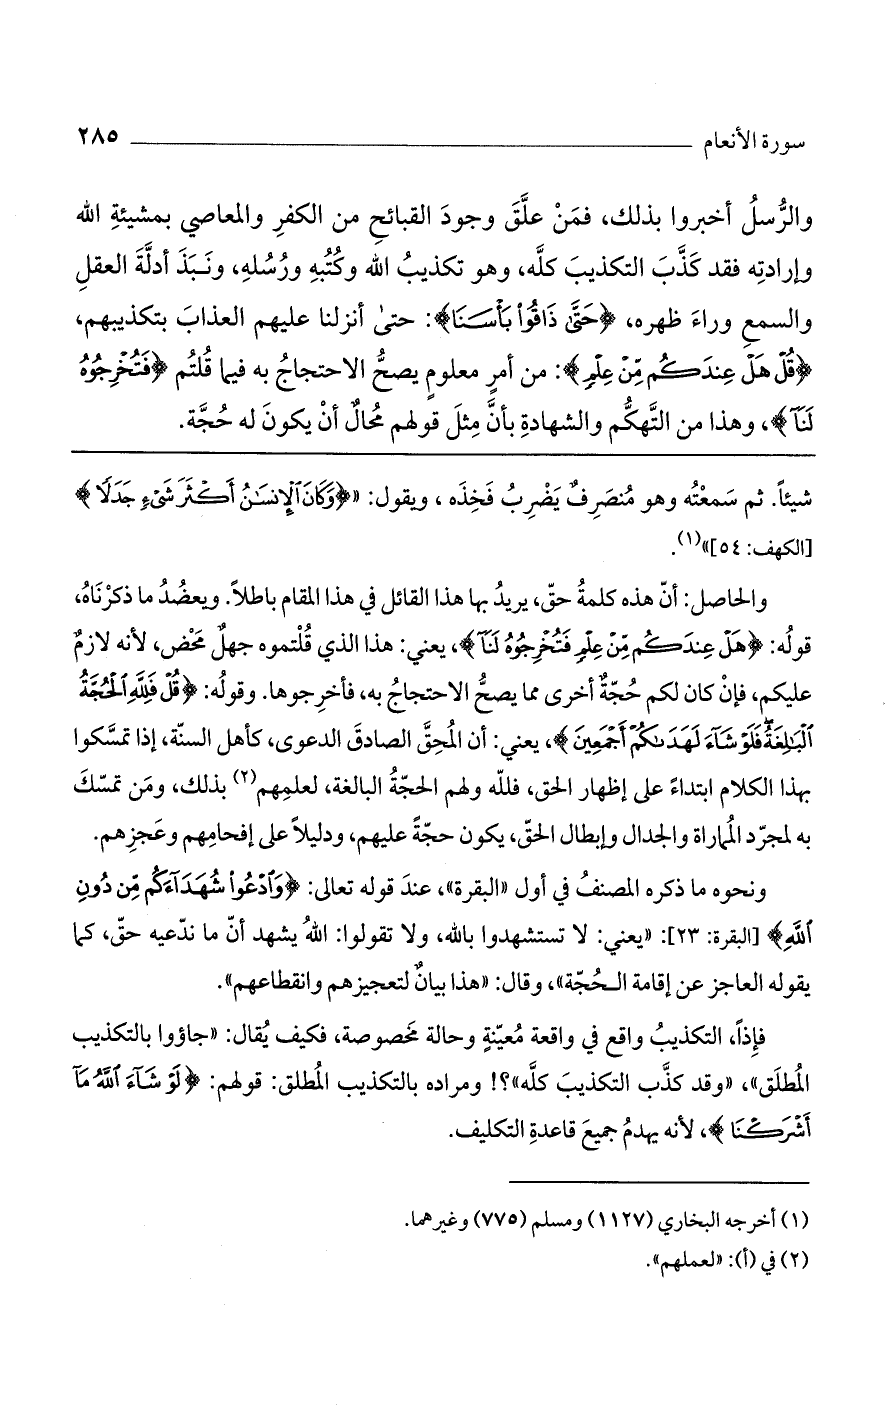 سورة الأنعام ٢٨٥
والرُّسلُ أخبروا بذلك، فمَنْ علَّقَ وجودَ القبائحِ من الكفرِ والمعاصي بمشيئةِ الله
وإرادتِه فقد كَذَّبَ التكذيبَ كلَّه، وهو تكذيبُ الله وكُتُبِهِ ورُسُلهِ، ونَبَذَ أدلَّةَ العقلِ
والسمعِ وراءَ ظهره، ﴿حَتَّىٰ ذَاقُوا۟ بَأْسَنَا﴾: حتىٰ أنزلنا عليهم العذابَ بتكذيبهم،
﴿قُلْ هَلْ عِندَكُم مِّنْ عِلْمٍ﴾: من أمرٍ معلومٍ يصحُّ الاحتجاجُ به فيما قُلتُم ﴿فَتُخْرِجُوهُ
لَنَآ﴾، وهذا من التَّهكُّم والشهادةِ بأنَّ مِثلَ قولهم مُحالٌ أنْ يكونَ له حُجَّة.
شيئاً. ثم سَمعْتُه وهو مُنصَرِفٌ يَضْرِبُ فَخِذَه ، ويقول: «﴿وَكَانَ ٱلْإِنسَـٰنُ أَكْثَرَ شَىْءٍ جَدَلًا﴾
[الكهف: ٥٤]»(١).
والحاصل: أنّ هذه كلمةُ حقّ، يريدُ بها هذا القائل في هذا المقام باطلاً. ويعضُدُ ما ذكرْنَاهُ،
قولُه: ﴿هَلْ عِندَكُم مِّنْ عِلْمٍ فَتُخْرِجُوهُ لَنَآ﴾، يعني: هذا الذي قُلْتموه جهلٌ مَحْض، لأنه لازمٌ
عليكم، فإنْ كان لكم حُجّةٌ أخرى مما يصحُّ الاحتجاجُ به، فأخرِجوها. وقولُه: ﴿قُلْ فَلِلَّهِ ٱلْحُجَّةُ
ٱلْبَـٰلِغَةُ ۖ فَلَوْ شَآءَ لَهَدَىٰكُمْ أَجْمَعِينَ﴾، يعني: أن المُحِقَّ الصادقَ الدعوى، كأهل السنّة، إذا تمسَّكوا
بهذا الكلام ابتداءً على إظهار الحق، فللّه ولهم الحجّةُ البالغة، لعلمِهم(٢) بذلك، ومَن تمسّكَ
به لمجرّد المُماراة والجدال وإبطال الحقّ، يكون حجّةً عليهم، ودليلاً على إفحامِهم وعَجزِهم.
ونحوه ما ذكره المصنفُ في أول «البقرة»، عندَ قوله تعالى: ﴿وَٱدْعُوا۟ شُهَدَآءَكُم مِّن دُونِ
ٱللَّهِ﴾ [البقرة: ٢٣]: «يعني: لا تستشهدوا بالله، ولا تقولوا: اللهُ يشهد أنّ ما ندّعيه حقّ، كما
يقوله العاجز عن إقامة الـحُجّة»، وقال: «هذا بيانٌ لتعجيزهم وانقطاعهم».
فإذاً، التكذيبُ واقع في واقعة مُعيّنةٍ وحالة مخصوصة، فكيف يُقال: «جاؤوا بالتكذيب
المُطلَق»، «وقد كذَّب التكذيبَ كلَّه»؟! ومراده بالتكذيب المُطلق: قولهم: ﴿لَوْ شَآءَ ٱللَّهُ مَآ
أَشْرَكْنَا﴾، لأنه يهدمُ جميعَ قاعدةِ التكليف.
(١) أخرجه البخاري (١١٢٧) ومسلم (٧٧٥) وغيرهما.
(٢) في (أ): «لعملهم».